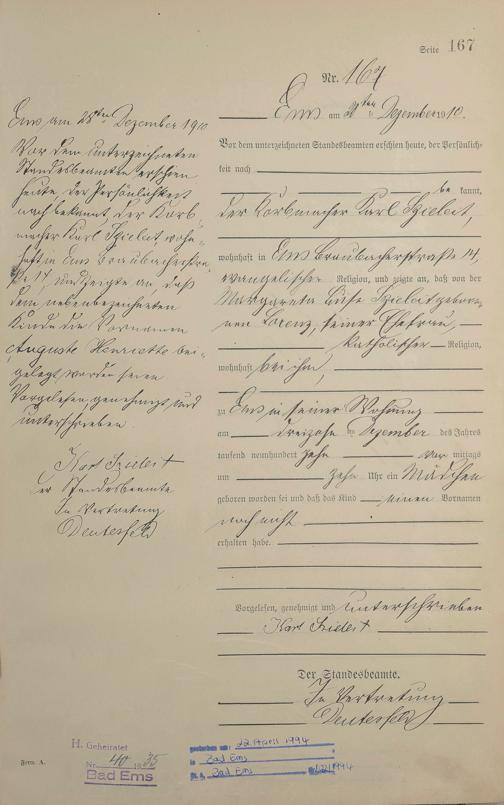 Seite 167
Nr. 167
Ems am ten Dezember 1910.
Vor dem unterzeichneten Standesbeamten erschien heute, der Persönlich-
keit nach
be kannt,
der Korbmacher Karl
wohnhaft in Ems Braubacherstraße 14,
evangelischer Religion, und zeigte an, daß von der
Margareta gebore-
nen Lorenz, seiner Ehefrau,
katholischer Religion,
wohnhaft bei ihm,
zu Ems in seiner Wohnung
am dreizehn ten Dezember des Jahres
tausend neunhundert zehn vor mittags
um zehn Uhr ein Mädchen
geboren worden sei und daß das Kind einen Vornamen
noch nicht
erhalten habe.
Vorgelesen, genehmigt und unterschrieben
Karl
Der Standesbeamte.
In Vertretung
Ems am 28ten Dezember 1910
Vor dem unterzeichneten
Standesbeamten erschien
heute, der Persönlichkeit
nach bekannt, der Korb-
macher Karl wohn-
haft in Ems Braubacherstra-
ße 14, und zeigte an, daß
dem nebenbezeichneten
Kinde die Vornamen
Auguste Henriette bei-
gelegt worden seien
Vorgelesen, genehmigt und
unterschrieben
Karl
er Standesbeamte
In Vertretung
H. Geheiratet
Nr. 40 1935
Bad Ems
gestorben am: 22. April 1994
in Bad Ems
Bad Ems /1994
Form. A.